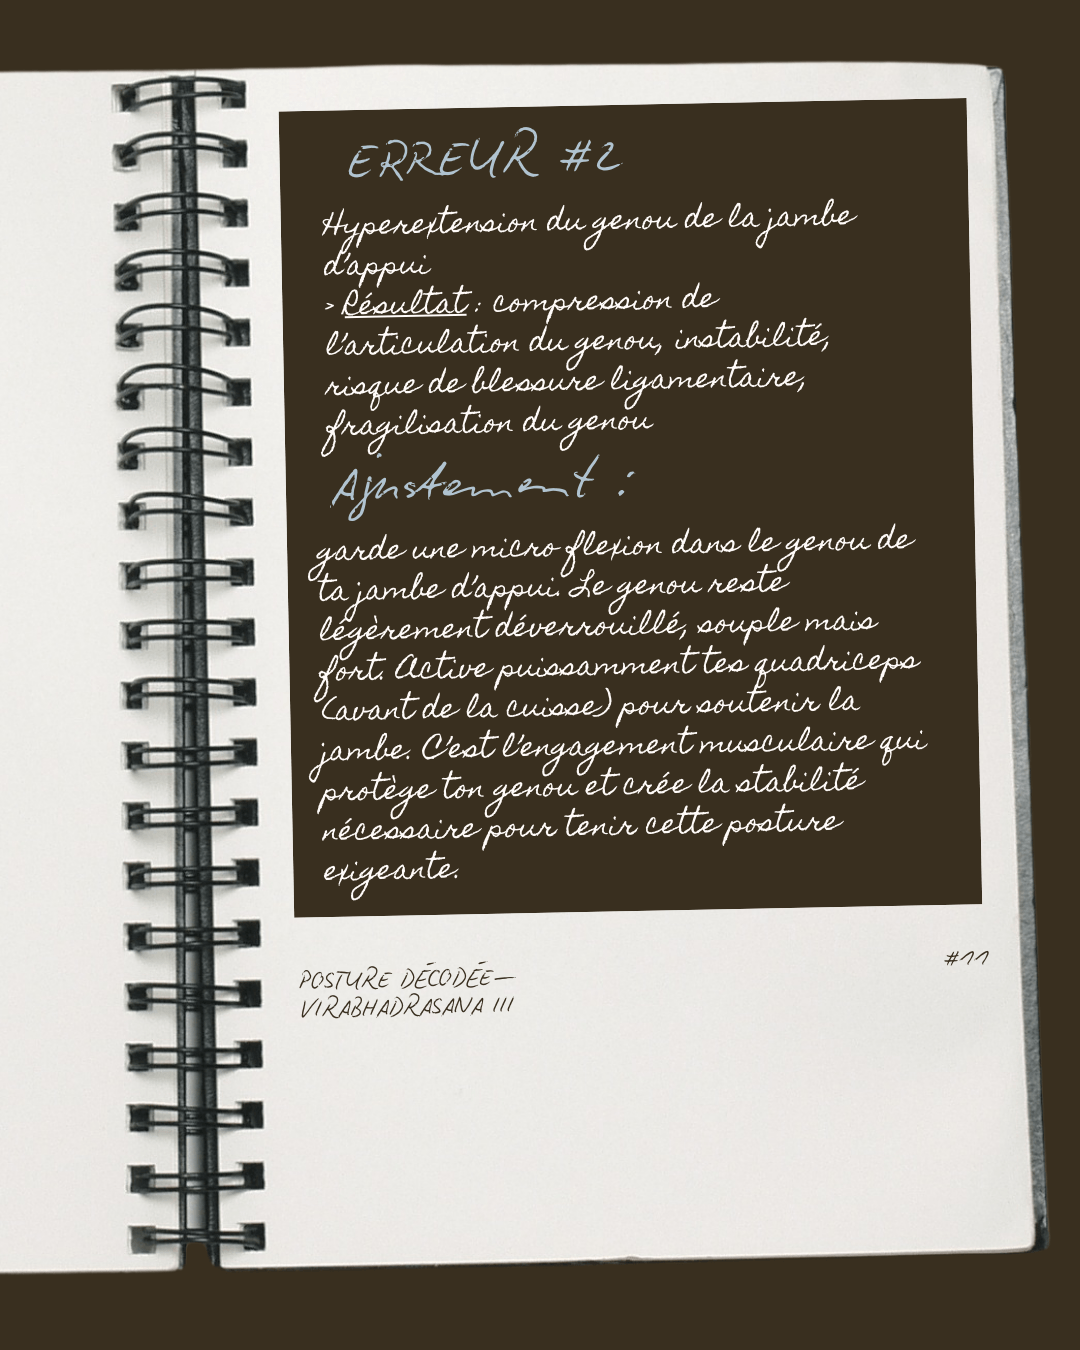 ERREUR #2
Hyperextension du genou de la jambe
d'appui
> Résultat : compression de
l'articulation du genou, instabilité,
risque de blessure ligamentaire,
fragilisation du genou
Ajustement :
garde une micro flexion dans le genou de
ta jambe d'appui. Le genou reste
légèrement déverrouillé, souple mais
fort. Active puissamment tes quadriceps
(avant de la cuisse) pour soutenir la
jambe. C'est l'engagement musculaire qui
protège ton genou et crée la stabilité
nécessaire pour tenir cette posture
exigeante.
#11
POSTURE DÉCODÉE—
VIRABHADRASANA III